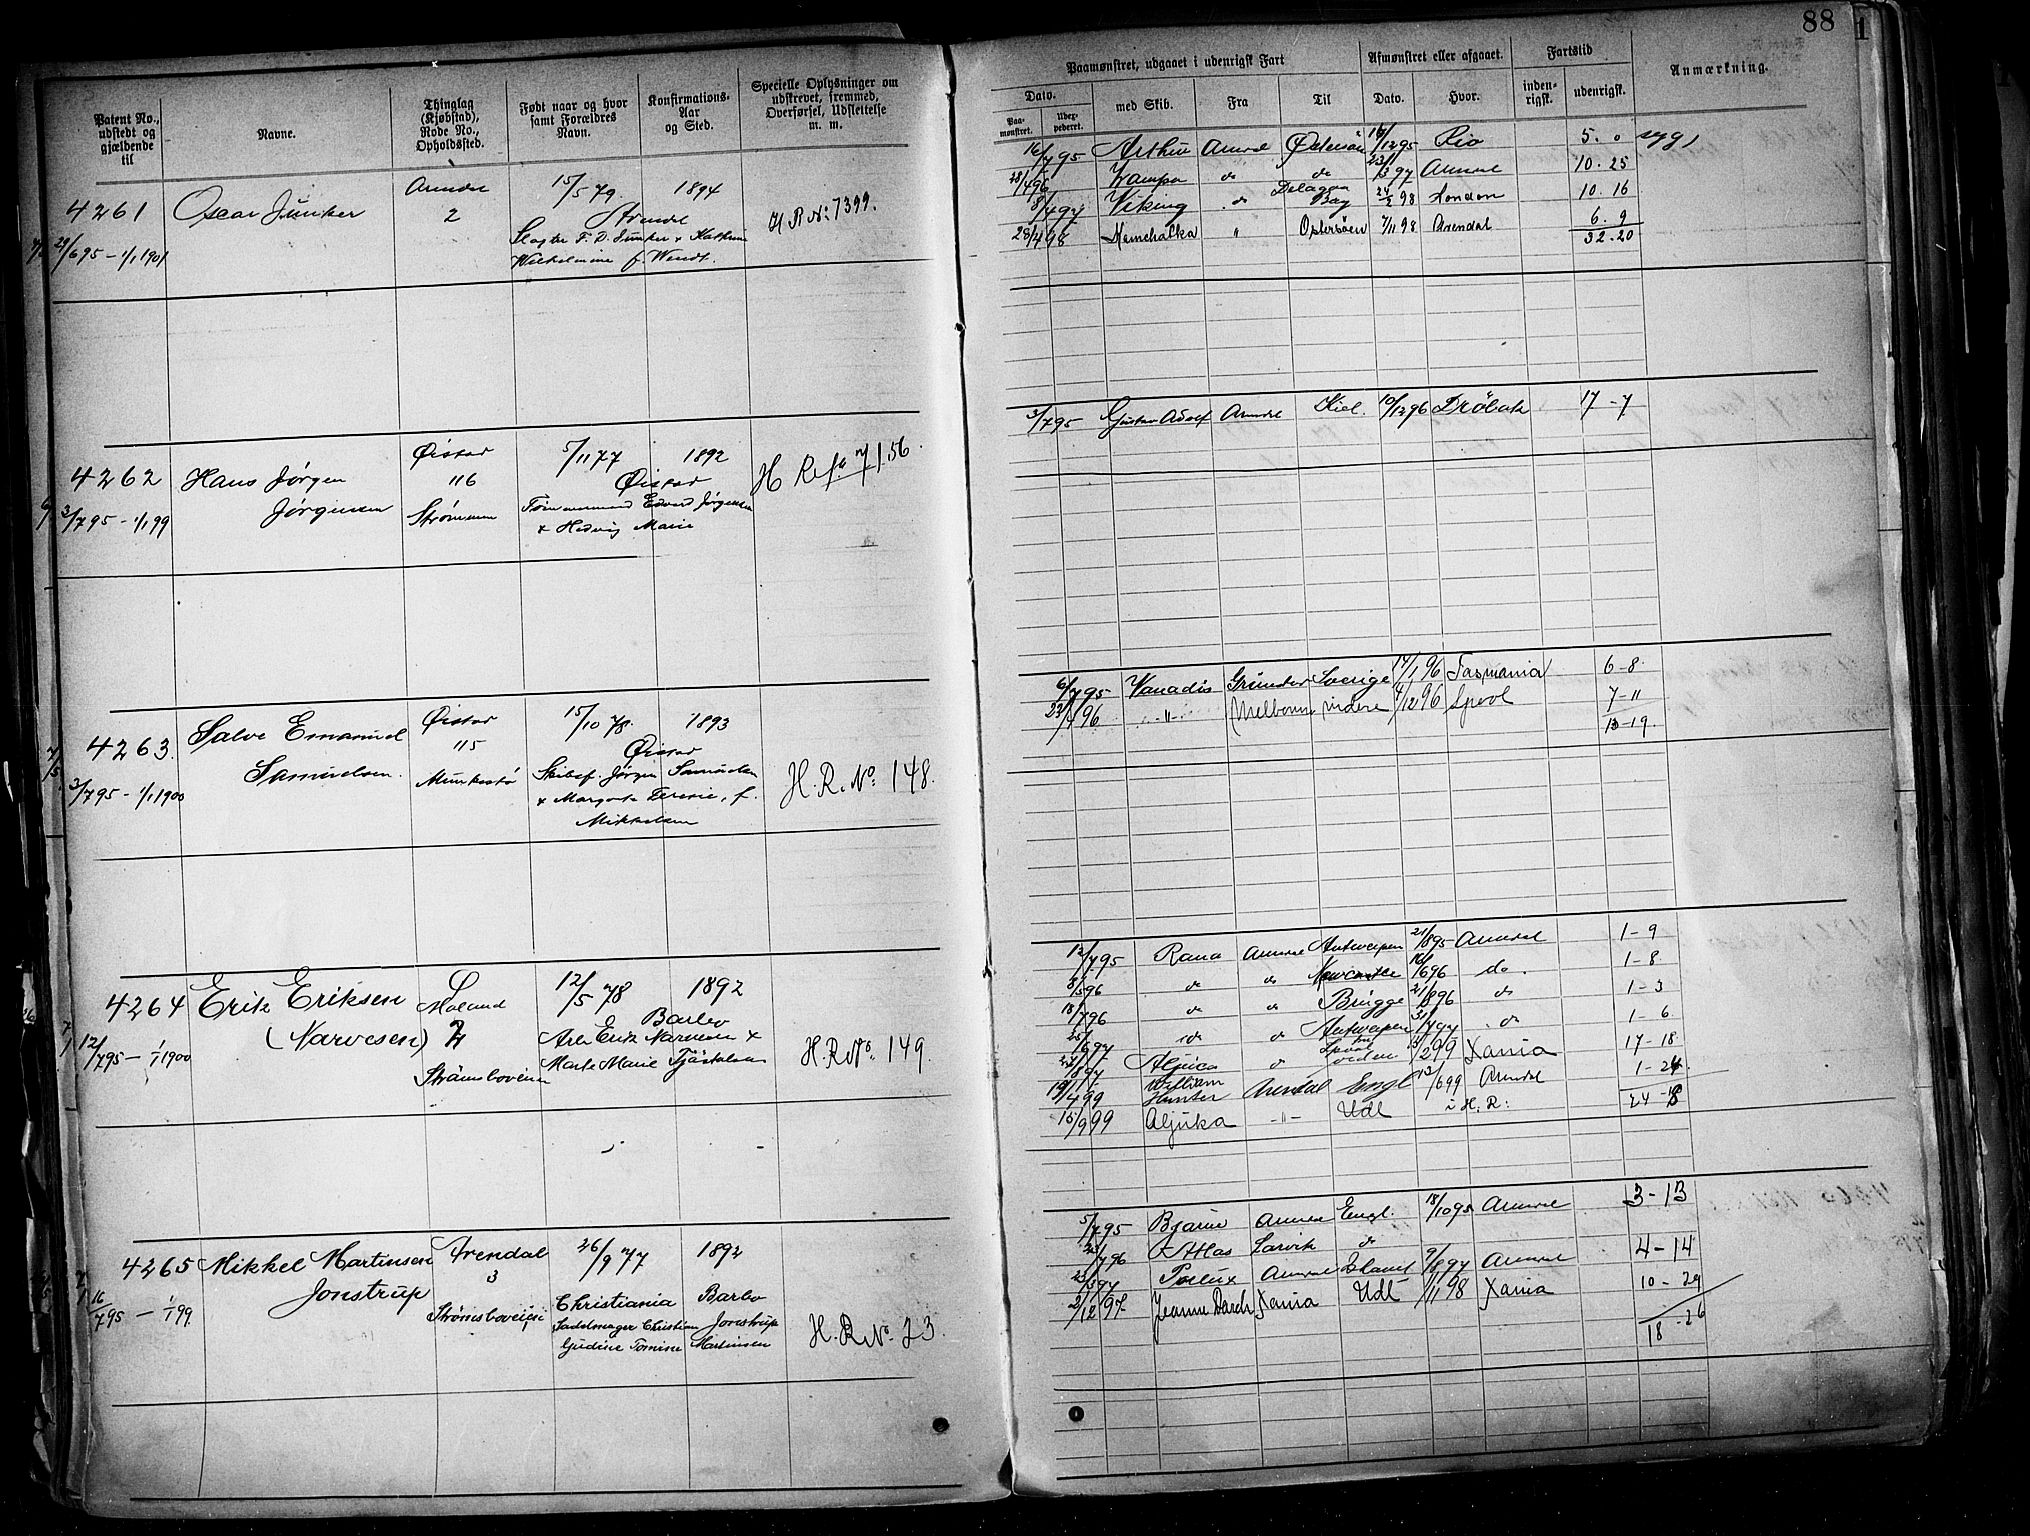 88
1
Patent No., udstedt og gjældende til
Navne.
Thinglag (Kjøbstad), Rode No., Opholdssted.
Født naar og hvor samt Forældres Navn.
Konfirmations-Aar og Sted.
Specielle Oplysninger om udskrevet, fremmed, Overførsel, Udslettelse m. m.
Paamønstret, udgaaet i udenrigsk Fart
Afmønstret eller afgaaet.
Fartstid
Anmærkning.
Dato.
Paamønstret.
Udexpederet.
med Skib.
Fra
Til
Dato.
Hvor.
indenrigsk.
udenrigsk.
4261
29/6 95 – 1/1 1901
Oscar Junker
Arendal
2
15/5 79
1894
Arendal
Slagter F. D. Junker + Kathrine
Wilhelmine f. Wendt.
H R No: 7399.
16/7 95 Arthur Arendal Østersøen 16/12 95 Rio 5. 0 syg,
28/4 96 Zampa do do 23/3 97 Arendal 10. 25
8/4 97 Viking do Delagoa Bay 24/2 98 London 10. 16
28/4 98 Østersøen 7/11 98 Arendal 6. 9
32-20
4262
3/7 95 – 1/1 99
Hans Jørgen
Jørgensen
Øistad
116
Strømmen
5/11 77
1892
Øistad
Tømmermand Edvard Jørgensen
+ Hedvig Marie
156
3/7 95 Gustav Adolf Arendal Kiel. 10/12 96 Drøbak 17-7
4263.
3/7 95 – 1/1 1900
Salve Emanuel
Samuelsen.
Øistad
115
15/10 78
1893
Øistad
Skibsf. Jørgen Samuelsen
+ Margrete Terecie, f.
Mikkelsen
H. R. No: 148.
6/7 95 Vanadis Sverige 17/1 96 Tasmania 6-8
-"- videre 4/12 96 Lpool 7-11
13-19.
4264
12/7 95 – 1/1 1900
Erik Eriksen
(Narvesen)
Moland
Strømsboveien
12/5 78
1892
Barbo
Arb Erik Narvesen +
Marte Marie
H. R No: 149.
12/7 95 Rana Arendal Antwerpen 21/8 95 Arendal 1-9
8/5 96 do do Newcastle do. 1-8
18/7 96 do do Brügge 21/8 96 do 1-3
do do Antwerpen 31/7 97 do 1-6
Aljuca do 99 Xania 17-18
19/4 99 William Hunter Arendal Engl 13/6 99 Arendal 1-24
15/9 99 Aljuka -"- Udl i H. R: 24-8
4265
16/7 95 – 1/1 99.
Mikkel Martinsen
Jonstrup
Arendal
3
Strømsboveien
26/9 77
1892
Christiania
Barbo
Sadelmager Christian Jonstrup
Gudine Tomine Martinsen
H. R No. 23.
5/7 95 Bjarne Arendal Engl. 18/10 95 Arendal 3-13
Atlas Larvik do
Pollux Arendal 9/8 97 Arendal 4-14
2/12 97. Jeanne Darch Xania Udl 1/11 98 Xania 10-29
18-26